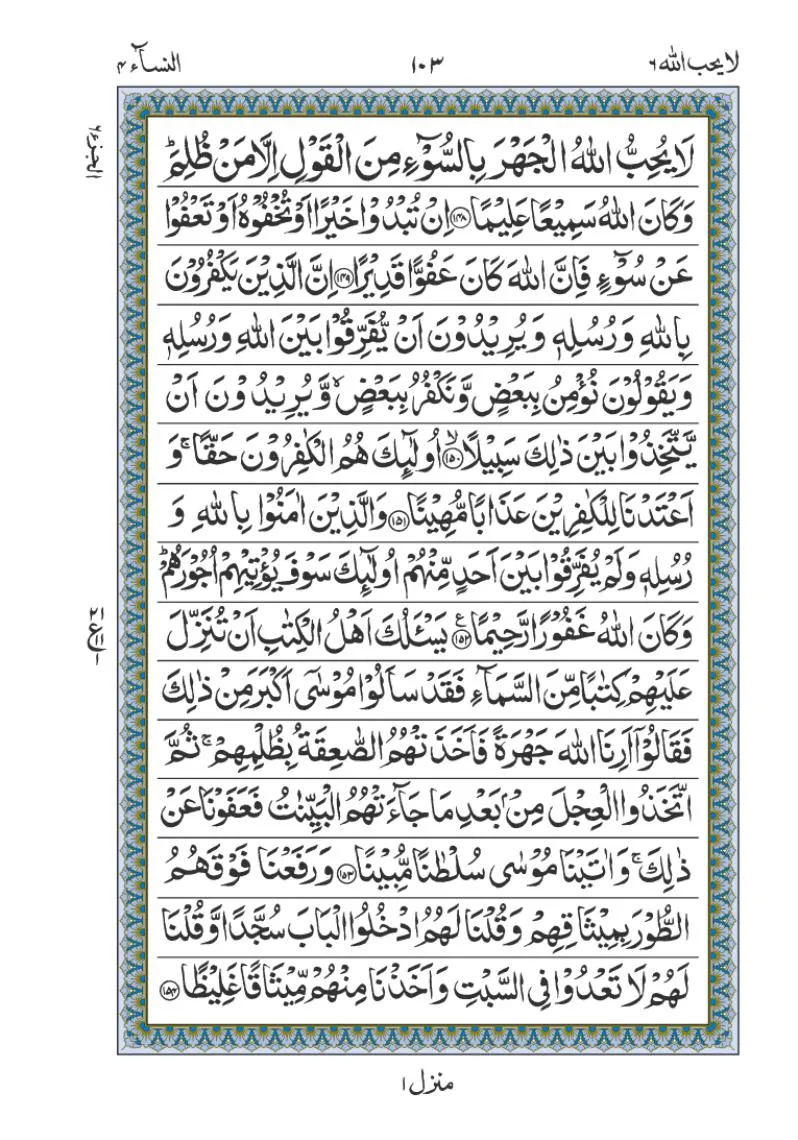 لا یحب اللہ ۶
۱۰۳
النسآء ۴
الجزء ۶
لَا یُحِبُّ اللّٰهُ الْجَهْرَ بِالسُّوْٓءِ مِنَ الْقَوْلِ اِلَّا مَنْ ظُلِمَ ؕ
وَ كَانَ اللّٰهُ سَمِیْعًا عَلِیْمًا ﴿۱۴۸﴾ اِنْ تُبْدُوْا خَیْرًا اَوْ تُخْفُوْهُ اَوْ تَعْفُوْا
عَنْ سُوْٓءٍ فَاِنَّ اللّٰهَ كَانَ عَفُوًّا قَدِیْرًا ﴿۱۴۹﴾ اِنَّ الَّذِیْنَ یَكْفُرُوْنَ
بِاللّٰهِ وَ رُسُلِهٖ وَ یُرِیْدُوْنَ اَنْ یُّفَرِّقُوْا بَیْنَ اللّٰهِ وَ رُسُلِهٖ
وَ یَقُوْلُوْنَ نُؤْمِنُ بِبَعْضٍ وَّ نَكْفُرُ بِبَعْضٍ ۙ وَّ یُرِیْدُوْنَ اَنْ
یَّتَّخِذُوْا بَیْنَ ذٰلِكَ سَبِیْلًا ۙ﴿۱۵۰﴾ اُولٰٓئِكَ هُمُ الْكٰفِرُوْنَ حَقًّا ۚ وَ
اَعْتَدْنَا لِلْكٰفِرِیْنَ عَذَابًا مُّهِیْنًا ﴿۱۵۱﴾ وَالَّذِیْنَ اٰمَنُوْا بِاللّٰهِ وَ
رُسُلِهٖ وَ لَمْ یُفَرِّقُوْا بَیْنَ اَحَدٍ مِّنْهُمْ اُولٰٓئِكَ سَوْفَ یُؤْتِیْهِمْ اُجُوْرَهُمْ ؕ
وَ كَانَ اللّٰهُ غَفُوْرًا رَّحِیْمًا ﴿۱۵۲﴾ ع یَسْئَلُكَ اَهْلُ الْكِتٰبِ اَنْ تُنَزِّلَ
عَلَیْهِمْ كِتٰبًا مِّنَ السَّمَآءِ فَقَدْ سَاَلُوْا مُوْسٰۤی اَكْبَرَ مِنْ ذٰلِكَ
فَقَالُوْۤا اَرِنَا اللّٰهَ جَهْرَةً فَاَخَذَتْهُمُ الصّٰعِقَةُ بِظُلْمِهِمْ ۚ ثُمَّ
اتَّخَذُوا الْعِجْلَ مِنْۢ بَعْدِ مَا جَآءَتْهُمُ الْبَیِّنٰتُ فَعَفَوْنَا عَنْ
ذٰلِكَ ۚ وَ اٰتَیْنَا مُوْسٰی سُلْطٰنًا مُّبِیْنًا ﴿۱۵۳﴾ وَ رَفَعْنَا فَوْقَهُمُ
الطُّوْرَ بِمِیْثَاقِهِمْ وَ قُلْنَا لَهُمُ ادْخُلُوا الْبَابَ سُجَّدًا وَّ قُلْنَا
لَهُمْ لَا تَعْدُوْا فِی السَّبْتِ وَ اَخَذْنَا مِنْهُمْ مِّیْثَاقًا غَلِیْظًا ﴿۱۵۴﴾
منزل ۱